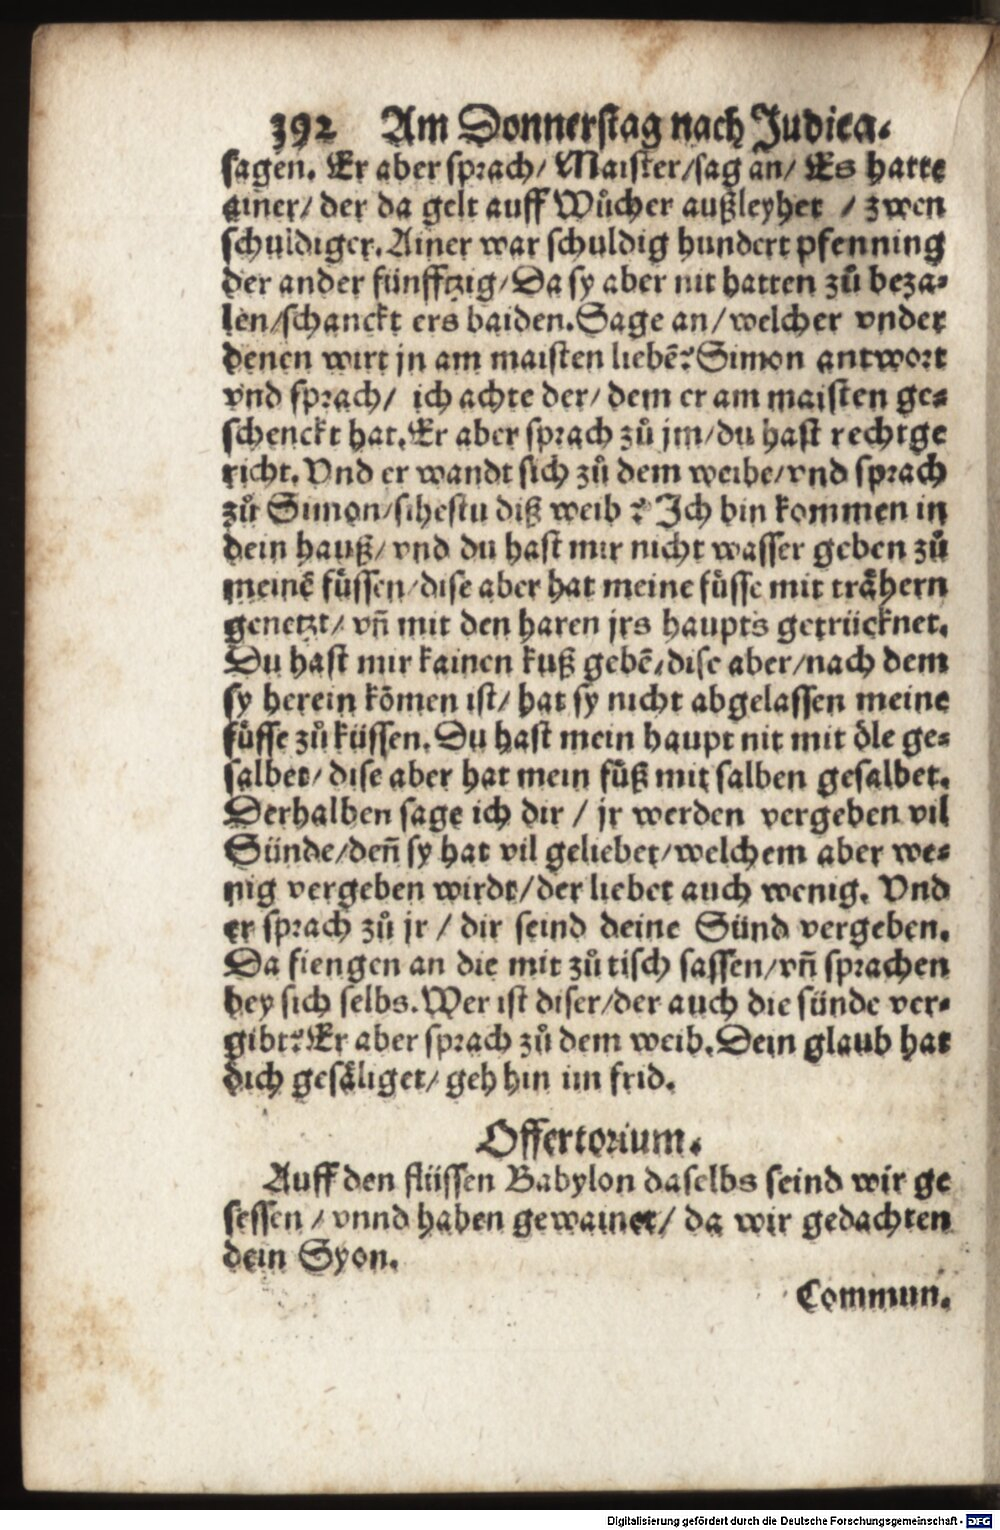 392 Am Donnerstag nach Judica.
sagen. Er aber sprach/ Maister/sag an/ Es hatte
ainer/ der da gelt auff Wůcher außleyhet / zwen
schuldiger. Ainer war schuldig hundert pfenning
der ander fünfftzig/ Da sy aber nit hatten zů beza-
len/schanckt ers baiden. Sage an/welcher vnder
denen wirt jn am maisten liebē? Simon antwort
vnd sprach/ ich achte der/ dem er am maisten ge-
schenckt hat. Er aber sprach zů jm/du hast recht ge
richt. Vnd er wandt sich zů dem weibe/vnd sprach
zů Simon/sihestu diß weib? Ich bin kommen in
dein hauß/ vnd du hast mir nicht wasser geben zů
meinē füssen/dise aber hat meine füsse mit trähern
genetzt/ vñ mit den haren jrs haupts getrücknet.
Du hast mir kainen kuß gebē/dise aber/nach dem
sy herein kōmen ist/ hat sy nicht abgelassen meine
füsse zů küssen. Du hast mein haupt nit mit öle ge-
salbet/ dise aber hat mein fůß mit salben gesalbet.
Derhalben sage ich dir / jr werden vergeben vil
Sünde/deñ sy hat vil geliebet/welchem aber we-
nig vergeben wirdt/der liebet auch wenig. Vnd
er sprach zů jr / dir seind deine Sünd vergeben.
Da fiengen an die mit zů tisch sassen/vñ sprachen
bey sich selbs. Wer ist diser/der auch die sünde ver-
gibt? Er aber sprach zů dem weib. Dein glaub hat
dich gesäliget/ geh hin im frid.
Offertorium.
Auff den flüssen Babylon daselbs seind wir ge
sessen / vnnd haben gewainet/ da wir gedachten
dein Syon.
Commun.
Digitalisierung gefördert durch die Deutsche Forschungsgemeinschaft - DFG